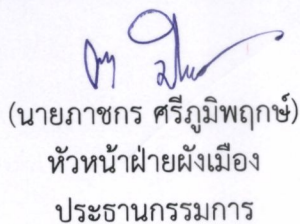 (นายภาชกร ศรีภูมิพฤกษ์)
หัวหน้าฝ่ายผังเมือง
ประธานกรรมการ